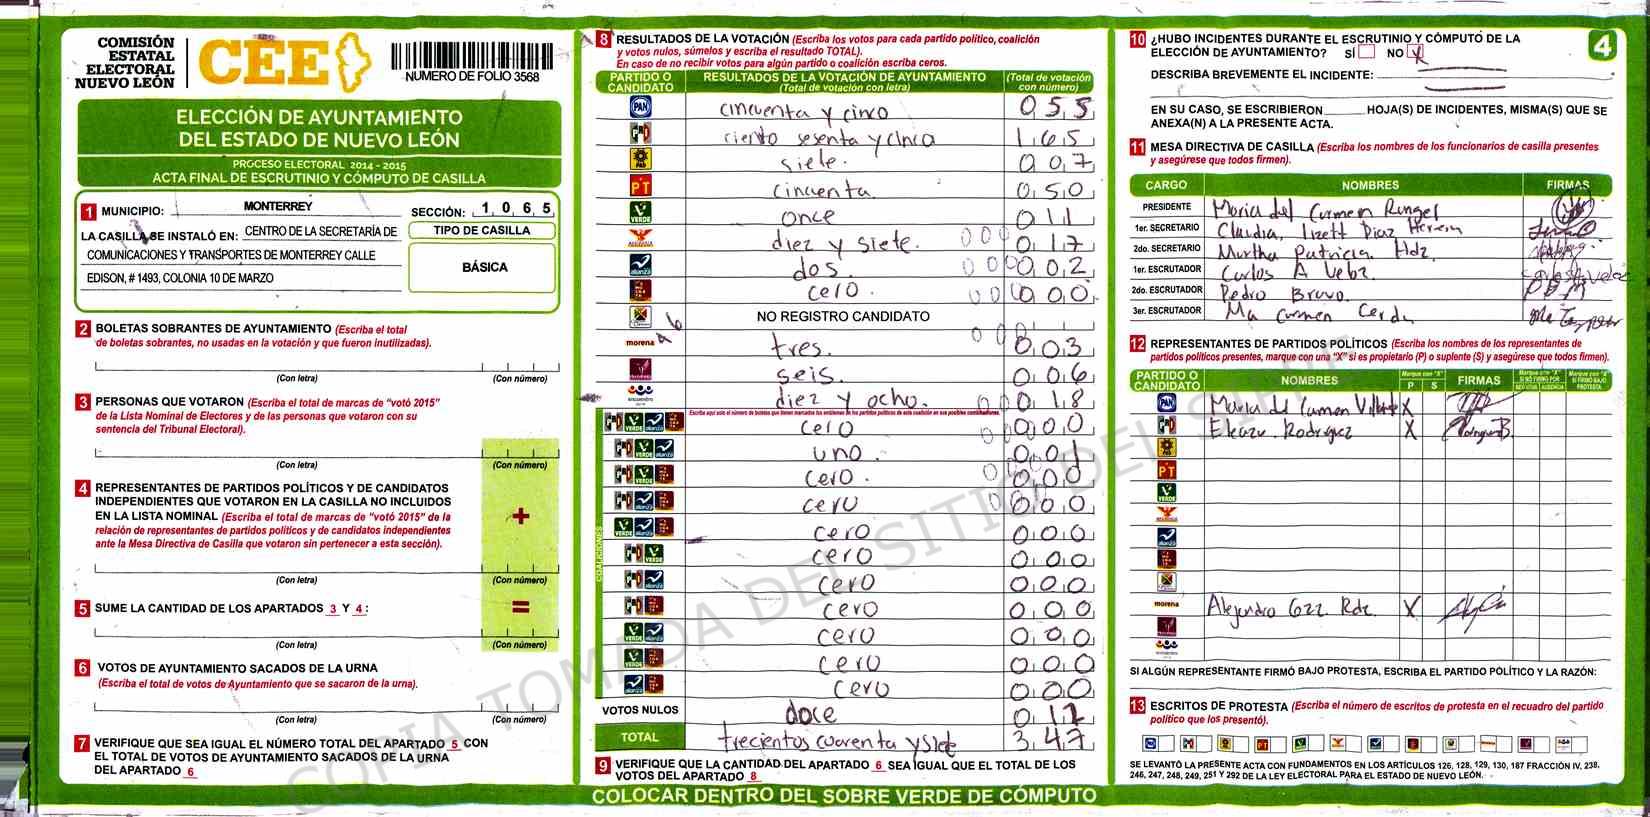 COMISIÓN
ESTATAL
ELECTORAL
NUEVO LEÓN
CEE
NUMERO DE FOLIO 3568
ELECCIÓN DE AYUNTAMIENTO
DEL ESTADO DE NUEVO LEÓN
PROCESO ELECTORAL 2014 - 2015
ACTA FINAL DE ESCRUTINIO Y CÓMPUTO DE CASILLA
1 MUNICIPIO: MONTERREY SECCIÓN: 1 0 6 5
LA CASILLA SE INSTALÓ EN: CENTRO DE LA SECRETARÍA DE
COMUNICACIONES Y TRANSPORTES DE MONTERREY CALLE
EDISON, # 1493, COLONIA 10 DE MARZO
TIPO DE CASILLA
BÁSICA
2 BOLETAS SOBRANTES DE AYUNTAMIENTO (Escriba el total
de boletas sobrantes, no usadas en la votación y que fueron inutilizadas).
(Con letra) (Con número)
3 PERSONAS QUE VOTARON (Escriba el total de marcas de “votó 2015”
de la Lista Nominal de Electores y de las personas que votaron con su
sentencia del Tribunal Electoral).
(Con letra) (Con número)
4 REPRESENTANTES DE PARTIDOS POLÍTICOS Y DE CANDIDATOS
INDEPENDIENTES QUE VOTARON EN LA CASILLA NO INCLUIDOS
EN LA LISTA NOMINAL (Escriba el total de marcas de “votó 2015” de la
relación de representantes de partidos políticos y de candidatos independientes
ante la Mesa Directiva de Casilla que votaron sin pertenecer a esta sección).
+
(Con letra) (Con número)
5 SUME LA CANTIDAD DE LOS APARTADOS 3 Y 4 :
=
(Con letra) (Con número)
6 VOTOS DE AYUNTAMIENTO SACADOS DE LA URNA
(Escriba el total de votos de Ayuntamiento que se sacaron de la urna).
(Con letra) (Con número)
7 VERIFIQUE QUE SEA IGUAL EL NÚMERO TOTAL DEL APARTADO 5 CON
EL TOTAL DE VOTOS DE AYUNTAMIENTO SACADOS DE LA URNA
DEL APARTADO 6
8 RESULTADOS DE LA VOTACIÓN (Escriba los votos para cada partido político, coalición
y votos nulos, súmelos y escriba el resultado TOTAL).
En caso de no recibir votos para algún partido o coalición escriba ceros.
PARTIDO O CANDIDATO
RESULTADOS DE LA VOTACIÓN DE AYUNTAMIENTO
(Total de votación con letra)
(Total de votación con número)
PAN cincuenta y cinco 055
PRI ciento sesenta y cinco 165
PRD siete. 007
PT cincuenta 050
VERDE once 011
diez y siete. 000 017
alianza dos. 000 002
cero. 000 000
NO REGISTRO CANDIDATO
morena tres. 000 003
seis. 006
encuentro diez y ocho. 018
Escriba aquí solo el número de boletas que tienen marcados los emblemas de los partidos políticos de esta coalición en sus posibles combinaciones.
COALICIONES
cero 000
uno. 000 001
cero. 000 000
cero 000 000
cero 000
cero 000
cero 000
cero 000
cero 000
cero 000
cero 000
VOTOS NULOS doce 012
TOTAL trecientos cuarenta y siete 347
9 VERIFIQUE QUE LA CANTIDAD DEL APARTADO 6 SEA IGUAL QUE EL TOTAL DE LOS
VOTOS DEL APARTADO 8
COLOCAR DENTRO DEL SOBRE VERDE DE CÓMPUTO
10 ¿HUBO INCIDENTES DURANTE EL ESCRUTINIO Y CÓMPUTO DE LA
ELECCIÓN DE AYUNTAMIENTO? SÍ NO X
4
DESCRIBA BREVEMENTE EL INCIDENTE:
EN SU CASO, SE ESCRIBIERON HOJA(S) DE INCIDENTES, MISMA(S) QUE SE
ANEXA(N) A LA PRESENTE ACTA.
11 MESA DIRECTIVA DE CASILLA (Escriba los nombres de los funcionarios de casilla presentes
y asegúrese que todos firmen).
CARGO NOMBRES FIRMAS
PRESIDENTE Maria del Carmen Rangel
1er. SECRETARIO Claudia Lizett Diaz Herrera
2do. SECRETARIO Martha Patricia Hdz.
1er. ESCRUTADOR Carlos A Veloz
2do. ESCRUTADOR Pedro Bravo.
3er. ESCRUTADOR Ma Carmen Cerda
12 REPRESENTANTES DE PARTIDOS POLÍTICOS (Escriba los nombres de los representantes de
partidos políticos presentes, marque con una “X” si es propietario (P) o suplente (S) y asegúrese que todos firmen).
PARTIDO O CANDIDATO NOMBRES Marque con "X" P S FIRMAS
PAN Maria del Carmen X
PRI Eleazar Rodriguez X
PRD
PT
VERDE
alianza
morena Alejandro Gzz. Rdz. X
SI ALGÚN REPRESENTANTE FIRMÓ BAJO PROTESTA, ESCRIBA EL PARTIDO POLÍTICO Y LA RAZÓN:
13 ESCRITOS DE PROTESTA (Escriba el número de escritos de protesta en el recuadro del partido
político que los presentó).
SE LEVANTÓ LA PRESENTE ACTA CON FUNDAMENTOS EN LOS ARTÍCULOS 126, 128, 129, 130, 187 FRACCIÓN IV, 238,
246, 247, 248, 249, 251 Y 292 DE LA LEY ELECTORAL PARA EL ESTADO DE NUEVO LEÓN.
COPIA TOMADA DEL SITIO DEL SIPRE